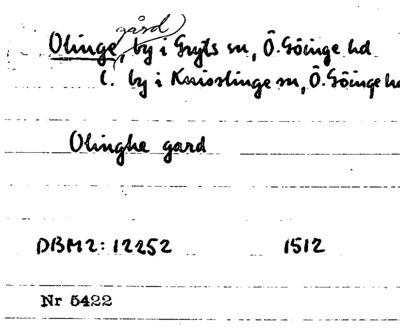 gård
Olinge, by i Gryts sn, Ö. Göinge hd
l. by i Knisslinge sn, Ö. Göinge hd
Olinghe gard
DBM2: 12252 1512
Nr 5422